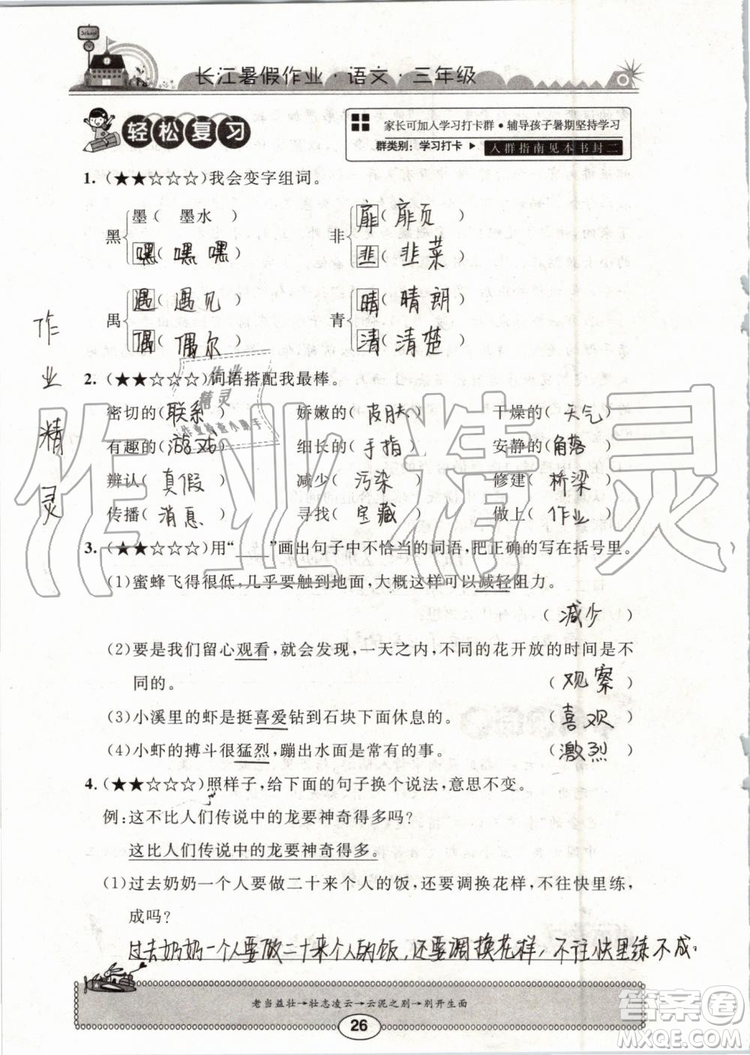 School
长江暑假作业·语文·三年级
轻松复习
家长可加入学习打卡群·辅导孩子暑期坚持学习
群类别：学习打卡 入群指南见本书封二
1.(★★☆☆☆)我会变字组词。
黑 墨( 墨水 ) 非 扉( 扉页 )
嘿( 嘿嘿 ) 韭( 韭菜 )
禺 遇( 遇见 ) 青 晴( 晴朗 )
偶( 偶尔 ) 清( 清楚 )
作业精灵
2.(★★☆☆☆)词语搭配我最棒。
密切的( 联系 ) 娇嫩的( 皮肤 ) 干燥的( 天气 )
有趣的( 游戏 ) 细长的( 手指 ) 安静的( 角落 )
辨认( 真假 ) 减少( 污染 ) 修建( 桥梁 )
传播( 消息 ) 寻找( 宝藏 ) 做上( 作业 )
3.(★★☆☆☆)用“____”画出句子中不恰当的词语，把正确的写在括号里。
(1)蜜蜂飞得很低，几乎要触到地面，大概这样可以减轻阻力。
( 减少 )
(2)要是我们留心观看，就会发现，一天之内，不同的花开放的时间是不
同的。 ( 观察 )
(3)小溪里的虾是挺喜爱钻到石块下面休息的。 ( 喜欢 )
(4)小虾的搏斗很猛烈，蹦出水面是常有的事。 ( 激烈 )
4.(★★☆☆☆)照样子，给下面的句子换个说法，意思不变。
例：这不比人们传说中的龙要神奇得多吗？
这比人们传说中的龙要神奇得多。
(1)过去奶奶一个人要做二十来个人的饭，还要调换花样，不往快里练，
成吗？
过去奶奶一个人要做二十来个人的饭，还要调换花样，不往快里练不成。
老当益壮→壮志凌云→云泥之别→别开生面
26
作业精灵
答案圈